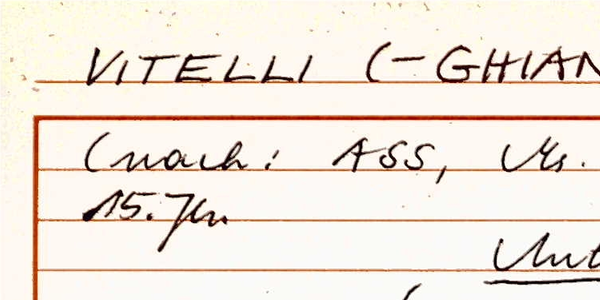 VITELLI (-GHIAN
(nach: ASS, Vs.
15. Jh.
Unt
(